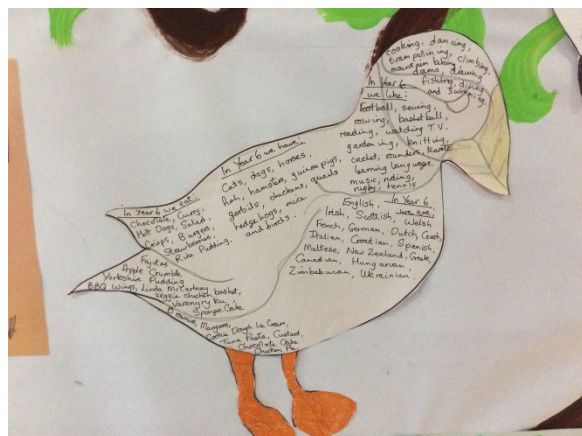 cooking, dancing,
trampolining, climbing,
mountain biking,
drama, drawing
fishing, diving
and swimming,
In Year 6
we like:
football, sewing,
rowing, basketball,
reading, watching T.V.
gardening, knitting,
cricket, rounders, Karate
learning languages
music, riding,
rugby, tennis
In Year 6 we have:
Cats, dogs, horses,
fish, hamsters, guinea pigs,
gerbils, chickens, quads
hedgehogs, mice
and birds.
In Year 6
we are:
English,
Irish, Scottish, Welsh
French, German, Dutch, Czech,
Italian, Croatian, Spanish,
Maltese, New Zealand, Greek,
Canadian, Hungarian,
Zimbabwean, Ukrainian.
In Year 6 we eat:
Chocolate, Curry,
Hot Dogs, Salad,
Crisps, Burgers,
Strawberries,
Rice Pudding,
Fajitas
Apple Crumble
Yorkshire Pudding
BBQ Wings, Linda McCartney
Veggie chicken basket,
Sponge Cake
Mangoes,
Cookie Dough Ice Cream,
Tuna Pasta, Custard,
Chocolate Cake
Chicken Pie.